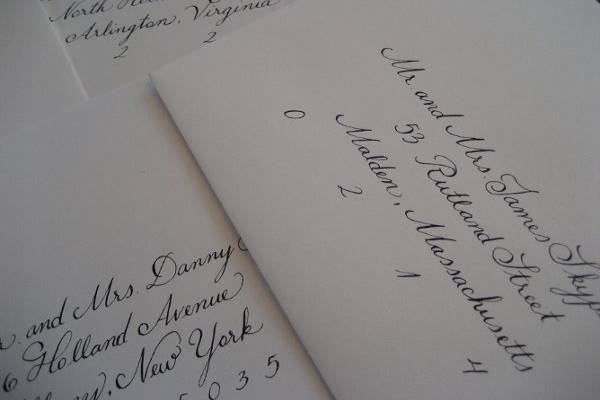 North
Arlington, Virginia
2 2
Mr. and Mrs. James
53 Rutland Street
Malden, Massachusetts
0 2 1 4
and Mrs. Danny
6 Holland Avenue
New York
0 3 5